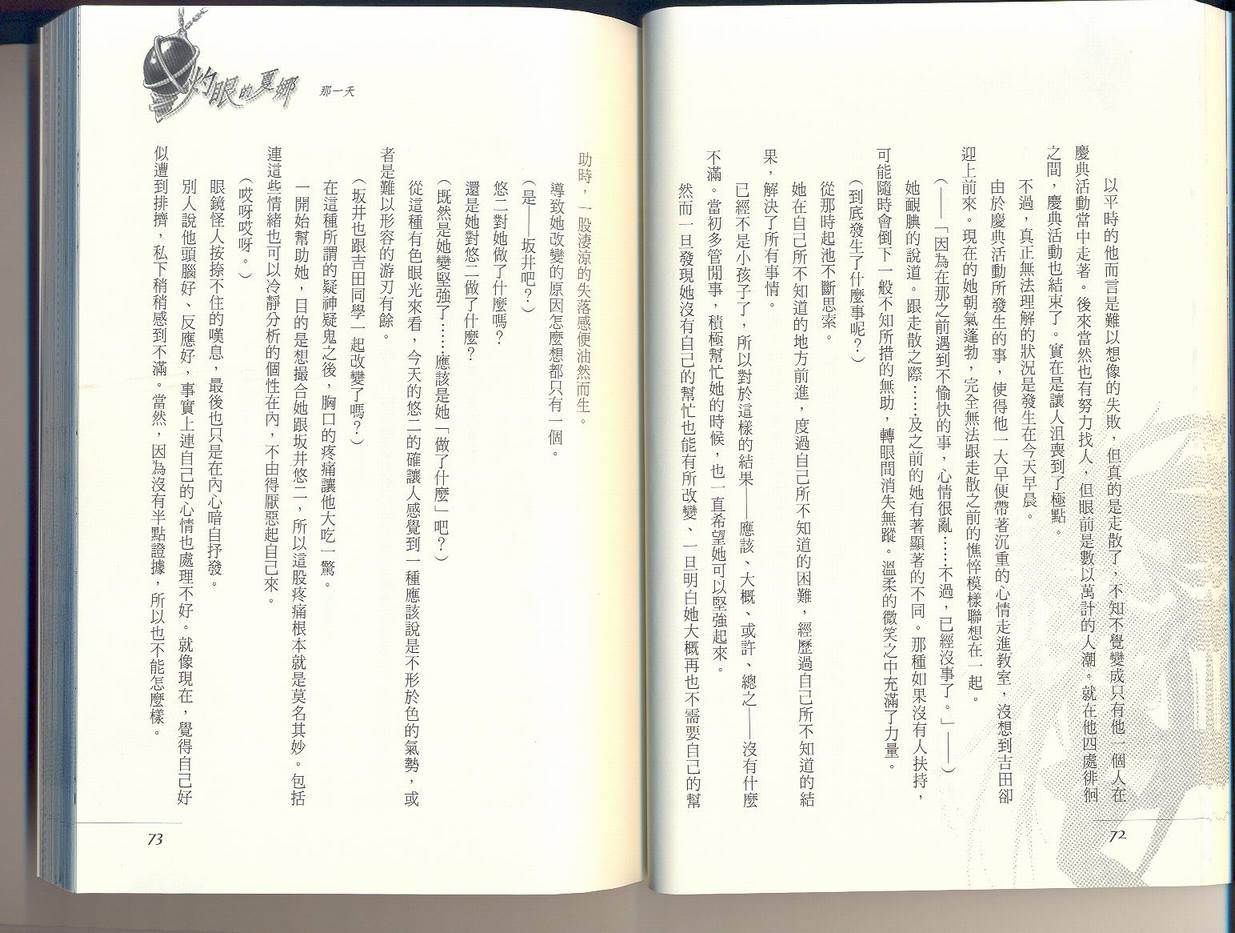 以平時的他而言是難以想像的失敗，但真的是走散了，不知不覺變成只有他一個人在
慶典活動當中走著。後來當然也有努力找人，但眼前是數以萬計的人潮。就在他四處徘徊
之間，慶典活動也結束了。實在是讓人沮喪到了極點。
不過，真正無法理解的狀況是發生在今天早晨。
由於慶典活動所發生的事，使得他一大早便帶著沉重的心情走進教室，沒想到吉田卻
迎上前來。現在的她朝氣蓬勃，完全無法跟走散之前的憔悴模樣聯想在一起。
（——「因為在那之前遇到不愉快的事，心情很亂……不過，已經沒事了。」——）
她靦腆的說道。跟走散之際……及之前的她有著顯著的不同。那種如果沒有人扶持，
可能隨時會倒下一般不知所措的無助，轉眼間消失無蹤。溫柔的微笑之中充滿了力量。
（到底發生了什麼事呢？）
從那時起池不斷思索。
她在自己所不知道的地方前進，度過自己所不知道的困難，經歷過自己所不知道的結
果，解決了所有事情。
已經不是小孩子了，所以對於這樣的結果——應該、大概、或許、總之——沒有什麼
不滿。當初多管閒事，積極幫忙她的時候，也一直希望她可以堅強起來。
然而一旦發現她沒有自己的幫忙也能有所改變、一旦明白她大概再也不需要自己的幫
72
灼眼的夏娜 那一天
助時，一股淒涼的失落感便油然而生。
導致她改變的原因怎麼想都只有一個。
（是——坂井吧？）
悠二對她做了什麼嗎？
還是她對悠二做了什麼？
（既然是她變堅強了……應該是她「做了什麼」吧？）
從這種有色眼光來看，今天的悠二的確讓人感覺到一種應該說是不形於色的氣勢，或
者是難以形容的游刃有餘。
（坂井也跟吉田同學一起改變了嗎？）
在這種所謂的疑神疑鬼之後，胸口的疼痛讓他大吃一驚。
一開始幫助她，目的是想撮合她跟坂井悠二，所以這股疼痛根本就是莫名其妙。包括
連這些情緒也可以冷靜分析的個性在內，不由得厭惡起自己來。
（哎呀哎呀。）
眼鏡怪人按捺不住的嘆息，最後也只是在內心暗自抒發。
別人說他頭腦好、反應好，事實上連自己的心情也處理不好。就像現在，覺得自己好
似遭到排擠，私下稍稍感到不滿。當然，因為沒有半點證據，所以也不能怎麼樣。
73